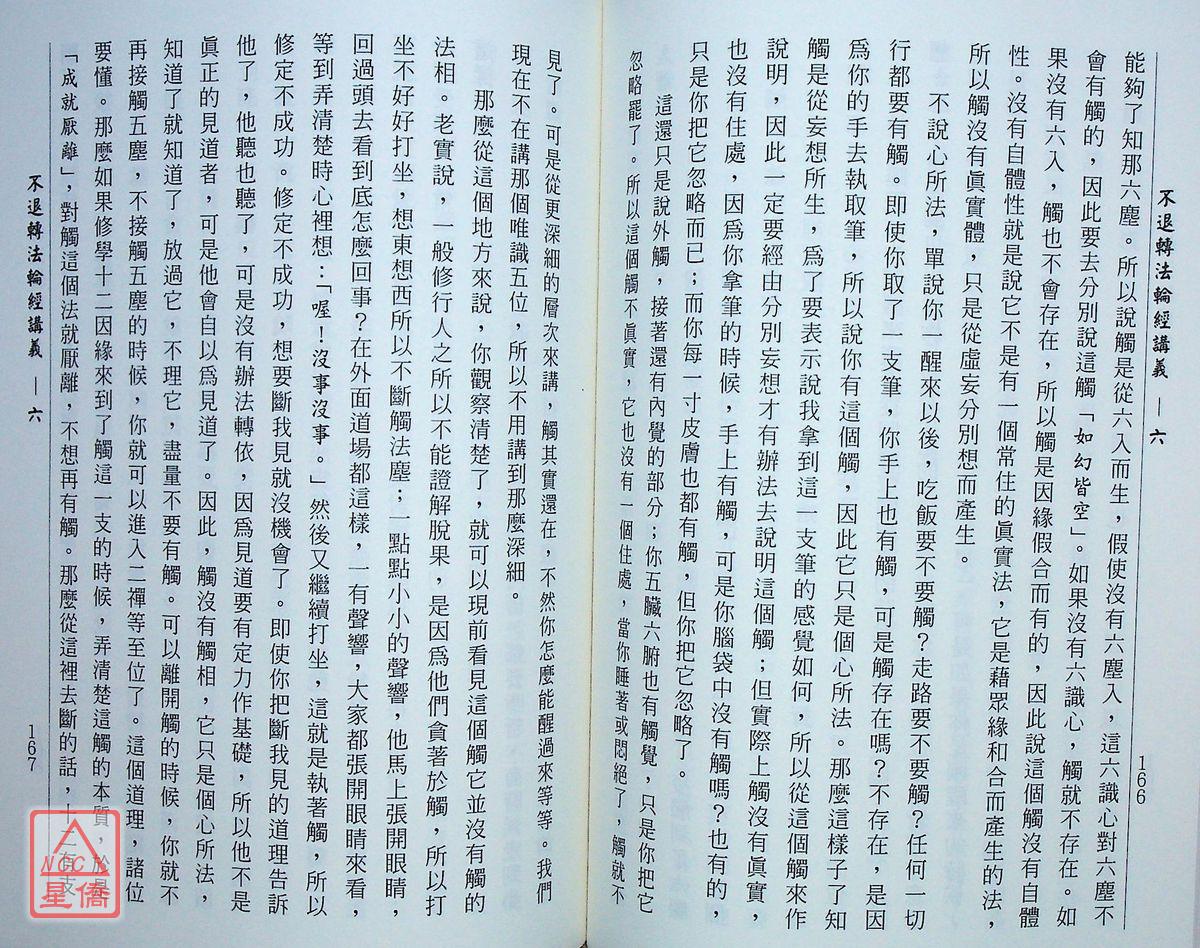 不退轉法輪經講義 — 六
166
能夠了知那六塵。所以說觸是從六入而生，假使沒有六塵入，這六識心對六塵不
會有觸的，因此要去分別說這觸「如幻皆空」。如果沒有六識心，觸就不存在。如
果沒有六入，觸也不會存在，所以觸是因緣假合而有的，因此說這個觸沒有自體
性。沒有自體性就是說它不是有一個常住的真實法，它是藉眾緣和合而產生的法，
所以觸沒有真實體，只是從虛妄分別想而產生。
不說心所法，單說你一醒來以後，吃飯要不要觸？走路要不要觸？任何一切
行都要有觸。即使你取了一支筆，你手上也有觸，可是觸存在嗎？不存在，是因
為你的手去執取筆，所以說你有這個觸，因此它只是個心所法。那麼這樣子了知
觸是從妄想所生，為了要表示說我拿到這一支筆的感覺如何，所以從這個觸來作
說明，因此一定要經由分別妄想才有辦法去說明這個觸；但實際上觸沒有真實，
也沒有住處，因為你拿筆的時候，手上有觸，可是你腦袋中沒有觸嗎？也有的，
只是你把它忽略而已；而你每一寸皮膚也都有觸，但你把它忽略了。
這還只是說外觸，接著還有內覺的部分；你五臟六腑也有觸覺，只是你把它
忽略罷了。所以這個觸不真實，它也沒有一個住處，當你睡著或悶絕了，觸就不
見了。可是從更深細的層次來講，觸其實還在，不然你怎麼能醒過來等等。我們
現在不在講那個唯識五位，所以不用講到那麼深細。
那麼從這個地方來說，你觀察清楚了，就可以現前看見這個觸它並沒有觸的
法相。老實說，一般修行人之所以不能證解脫果，是因為他們貪著於觸，所以打
坐不好好打坐，想東想西所以不斷觸法塵；一點點小小的聲響，他馬上張開眼睛，
回過頭去看到底怎麼回事？在外面道場都這樣，一有聲響，大家都張開眼睛來看，
等到弄清楚時心裡想：「喔！沒事沒事。」然後又繼續打坐，這就是執著觸，所以
修定不成功。修定不成功，想要斷我見就沒機會了。即使你把斷我見的道理告訴
他了，他聽也聽了，可是沒有辦法轉依，因為見道要有定力作基礎，所以他不是
真正的見道者，可是他會自以為見道了。因此，觸沒有觸相，它只是個心所法，
知道了就知道了，放過它，不理它，盡量不要有觸。可以離開觸的時候，你就不
再接觸五塵，不接觸五塵的時候，你就可以進入二禪等至位了。這個道理，諸位
要懂。那麼如果修學十二因緣來到了觸這一支的時候，弄清楚這觸的本質，於是
「成就厭離」，對觸這個法就厭離，不想再有觸。那麼從這裡去斷的話，十二有支
不退轉法輪經講義 — 六
167
NCC
星僑